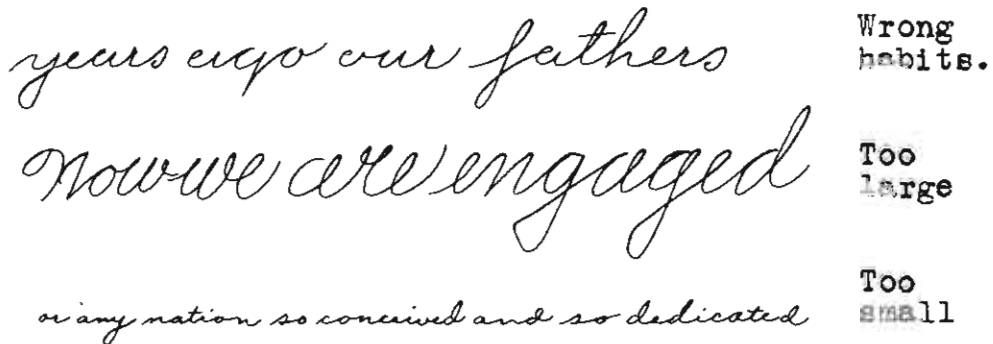 years ago our fathers
Wrong
habits.
Now we are engaged
Too
large
or any nation so conceived and so dedicated
Too
small